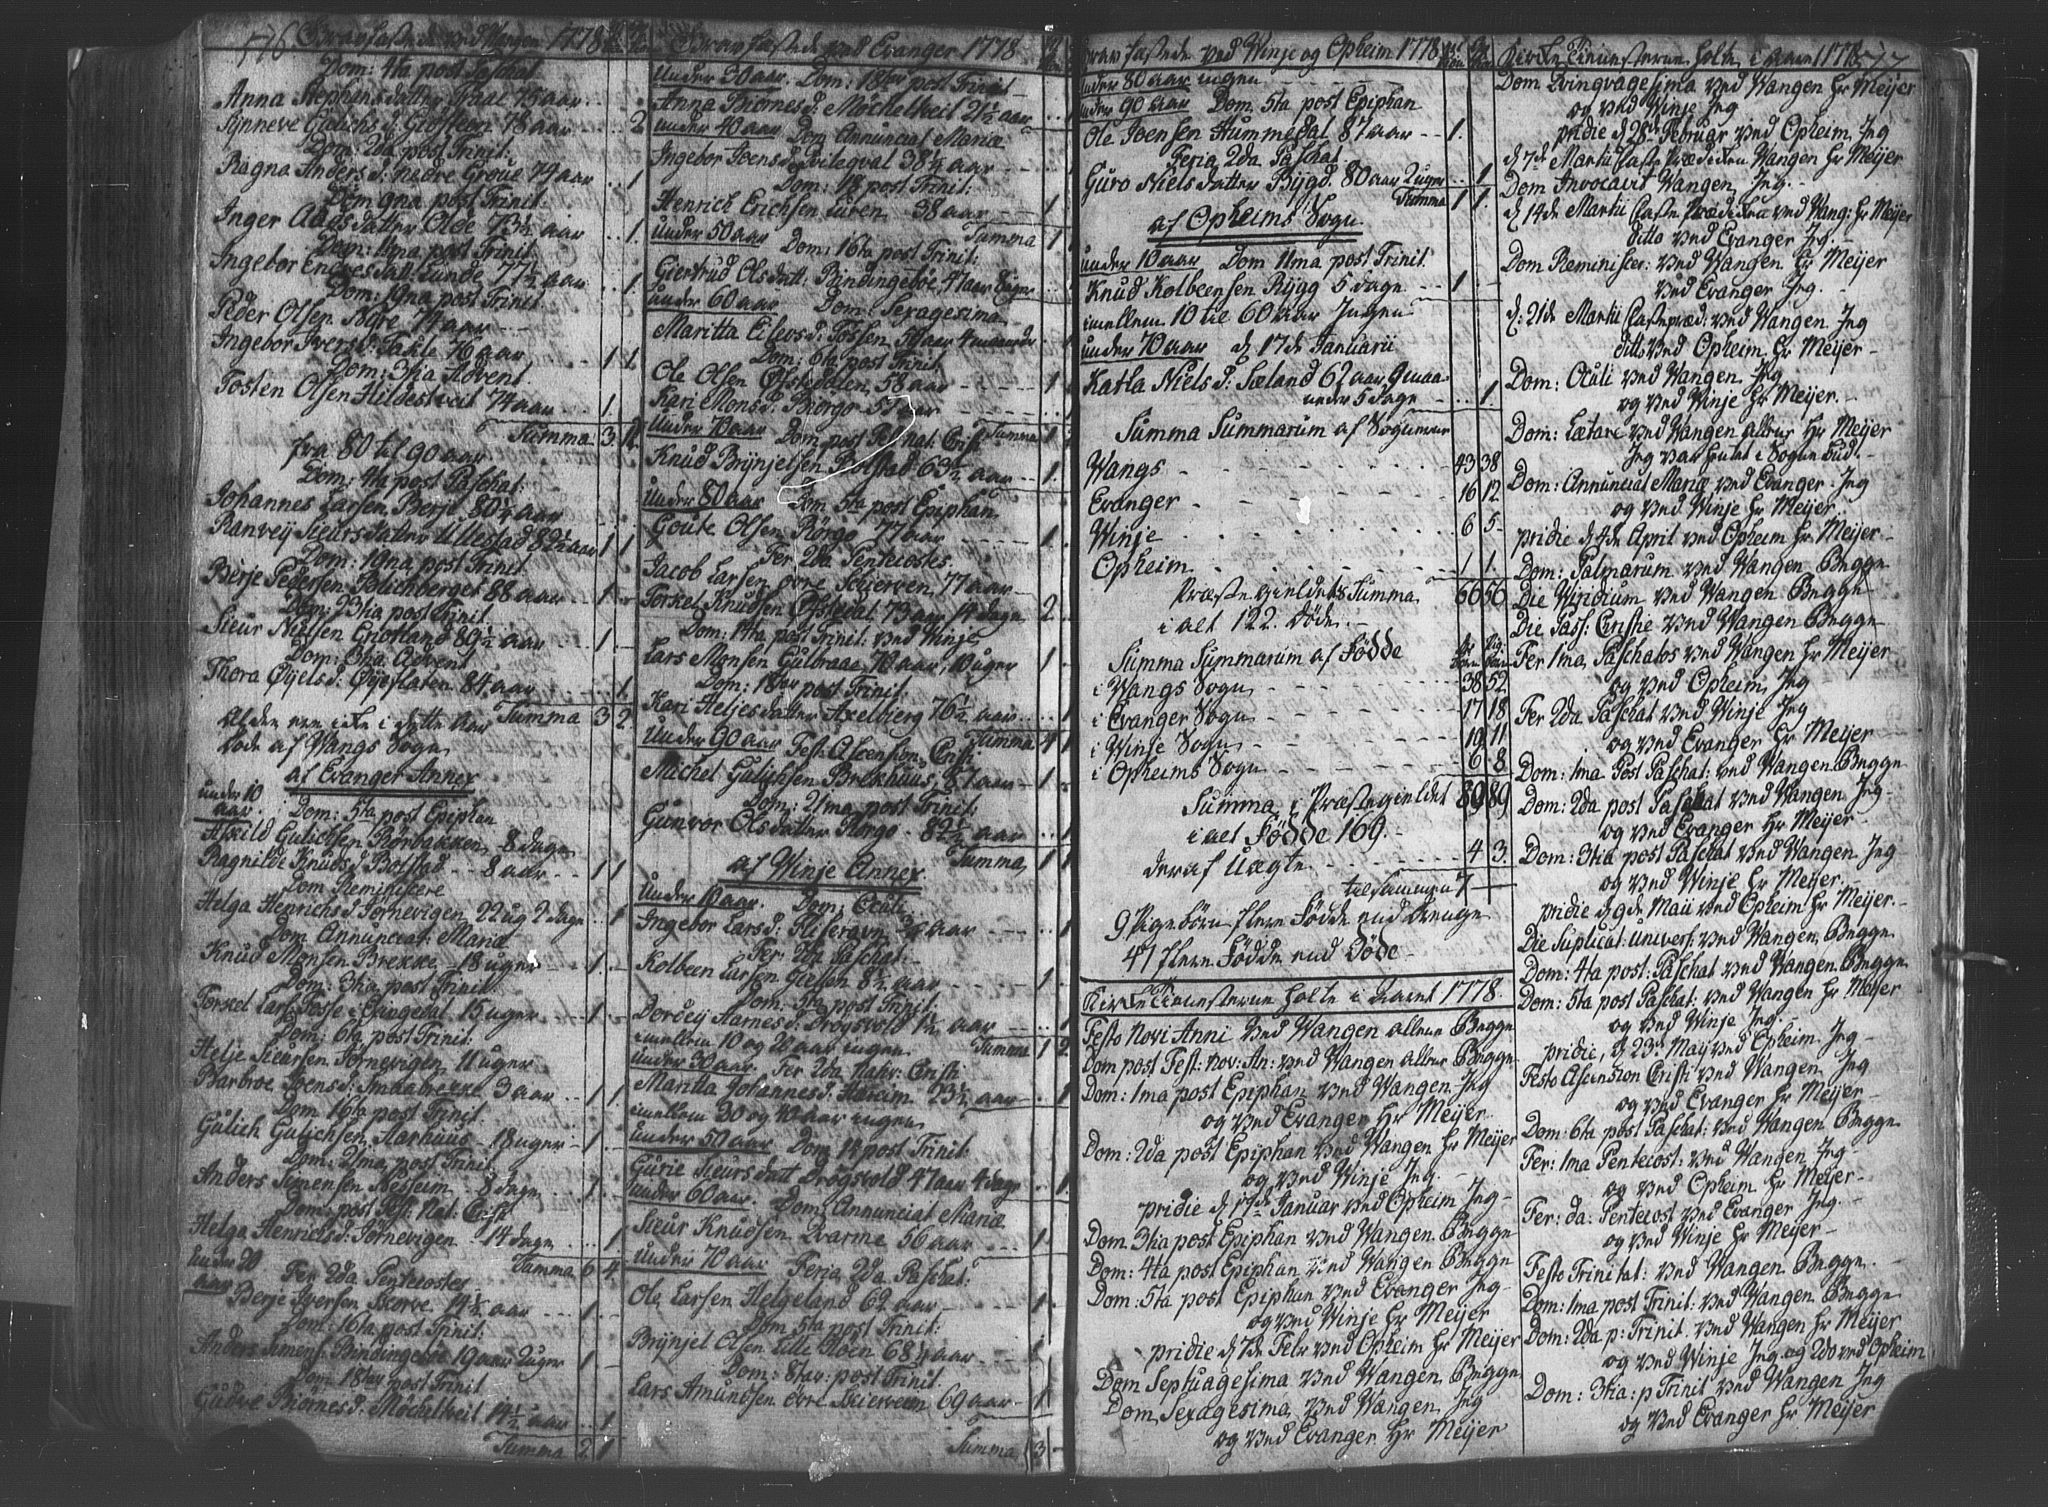 176 Gravfæstede ved Wangen 1778
Dom: 4ta post Paschat
Anna Stephens datter 75 aar
Synneve Gulichs d. 78 aar .. 2
Dom: 2da post Trinit:
Ragna Anders d: nedre Groue 74 aar .. 1
Dom 9na post Trinit.
Inger datter Olde 73½ aar .. 1.
Dom: 11ma post Trinit
Ingebor datt: Lunde 77½ aar .. 1.
Dom: 19na post Trinit
Peder Olsen 74 aar
Ingebor Ivers d: 76 aar 1 1
Dom: 3tia Advent.
Tosten Olsen Hildestveit 74 aar .. 1.
Summa 3 12
fra 80 til 90 aar
Dom: 4ta post Paschat:
Johannes Larsen Berje 80¼ aar
Ranvey Sieurs datter Ullestad 82½ aar 1 1
Dom: 19na post Trinit
Berje Pedersen 88 aar .. 1
Dom: 23tia post Trinit
Sieur Nielsen 89½ aar .. 1.
Dom: 3tia Advent
Thora d: Øyeflaten 84 aar .. 1.
Ældre ere icke i dette Aar Summa 3 2
døde af Wangs Sogn
af Evanger Annex
under 10 aar. Dom: 5ta post Epiphan
Gulichsen Rørbakken 8 dage
Ragnilde Knuds d Bolstad .. 8 aar .. 1 1
Dom Reminiscere
Helga Henrichs d. Førnevigen 22 ug 2 dage .. 1
Dom. Annunciat: Mariæ
Knud Monsen Brekke .. 18 uger .. 1.
Dom: 3tia post Trinit
Torkel Lars: Fosse i Exingedal 15 uger .. 1
Dom: 6ta post Trinit:
Helje Sieursen Førnevigen 11 uger
Barbroe Joens d. 3 aar .. 1 1.
Dom 16ta post Trinit:
Gulich Gulichsen Aarhuus .. 18 uger .. 1
Dom: 21ma post Trinit
Anders Simensen Nesheim .. 8 dage .. 1.
Dom: post Fest: Nat: Christi
Helga Henrichs d: Førnevigen 14 dage .. 1
Summa 6 4.
under 20 aar Fer 2da Pentecostes
Berje Iversen Skorve 14½ aar .. 1.
Dom: 16ta post Trinit:
Anders Simens: Bindingebøe 19 aar 2 uger 1
Dom 18ter post Trinit
Gudve Biørnes d: Mochelveit 14½ aar .. 1.
Summa 2 1
Gravfæstede ved Evanger 1778
under 30 aar. Dom: 18ter post Trinit
Anna Biørnes d. Mochelveit 21½ aar .. 1
under 40 aar Dom Annunciat Mariæ
Ingebor Joens d 38¼ aar
Dom: 18 post Trinit:
Henrich Erichsen 38 aar .. 1.
Summa 1 1
under 50 aar Dom: 16ta post Trinit:
Giertrud Ols datt: Bindingebøe 47 aar 8 uger
under 60 aar Dom: Sexagesima
Maritta Eilevs d: Fossen 59 aar 4 maaneder
Dom: 6ta post Trinit
Ole Olsen Øfstedalen 58 aar .. 1
Kari Mons d: Biørgo 57 aar
Summa 1
under 70 aar Dom, post F: Nat: Christi
Knud Brynjelsen Bolstad 63½ aar .. 1.
under 80 aar Dom 5ta post Epiphan
Goute Olsen Rørgo 77 aar .. 1.
Fer 2da Pentecostes
Jacob Larsen øvre Schierven 77 aar
Torkel Knudsen Øfstedal 73 aar 14 dage 2.
Dom: 14ta post Trinit: ved Winje
Lars Monsen Gulbraae 70 aar, 10 uger 1
Dom: 18ter post Trinit
Kari Heljes datter Axelbierg 76½ aar .. 1
Summa 4 1
under 90 aar Fest: Ascension. Christi
Michel Gulichsen Brekhuus 87 aar 1.
Dom: 21ma post Trinit:
Gunvor Ols datter Rørgo. 82½ aar .. 1
Summa 1 1
af Winje Annex
under 10 aar. Dom: Oculi
Ingebor Lars d: Fliseravn ¾ aar .. 1
Fer: 2da Paschat:
Kolbeen Larsen 8½ aar .. 1
Dom: 5ta post Trinit:
Dordey Aarnes d: Drogsvold 1½ aar .. 1
imellem 10 og 20 aar ingen Summa 1 2
under 30 aar: Fer 2da Nativ: Christi
Maritta Johannes d: 23½ aar .. 1
imellem 30 og 40 aar ingen
under 50 aar Dom 14 post Trinit:
Gurie Sieurs datt Drogsvold 47 aar 4 dage .. 1.
under 60 aar. Dom: Annunciat Mariæ
Sieur Knudsen Qvarme 56 aar .. 1
under 70 aar Feria 2da Paschat:
Ole Larsen Helgeland 62 aar .. 1.
Dom 5ta post Trinit:
Brynjel Olsen 68¼ aar .. 1
Dom: 8tav: post Trinit:
Lars Amundsen øvre Skierveen 69 aar .. 1
Summa 3
Gravfæstede ved Winje og Opheim 1778
under 80 aar ingen
under 90 aar Dom: 5ta post Epiphan
Ole Joensen Hummedal 87 aar .. 1.
Feria 2da Paschat
Guro Niels datter Bygd. 80 aar 2 uger .. 1
Summa 1 1.
af Opheims Sogn
under 10 aar Dom 11ma post Trinit
Knud Kolbeensen Rygg 5 dage .. 1
imellem 10 til 60 aar Ingen
under 70 aar d 17de Januarii
Katla Niels d: Sæland 62 aar 9 maa
neder 5 dage .. 1
Summa Summarum af Sognerne
Wangs 43 38
Evanger 16 12.
Winje 6 5.
Opheim 1 1.
Præstegieldets Summa 66 56
i alt 122. Døde.
Summa Summarum af Fødde Dr Børn Pig. Børn
i Wangs Sogn 38 52
i Evanger Sogn 17 18
i Winje Sogn 19 11
i Opheims Sogn 6 8
Summa i Præstegieldet 89 89
i alt Fødde 169.
deraf Uægte 4 3.
tilsammen 7
9 Pigebørn flere Fødde end Drenge
47 flere Fødde end Døde
Kircketienesterne holte i Aaret 1778.
Festo Novi Anni ved Wangen allene Begge
Dom post Fest: nov: An: ved Wangen Begge
Dom: 1ma post Epiphan ved Wangen Jeg
og ved Evanger Hr Meijer
Dom: 2da post Epiphan ved Wangen Hr Meijer
og ved Winje Jeg.
pridie d 17de Januar ved Opheim Jeg
Dom 3tia post Epiphan ved Wangen Begge
Dom: 4ta post Epiphan ved Wangen Begge
Dom: 5ta post Epiphan ved Evanger Jeg
og ved Winje Hr Meijer
pridie d 7de Febr ved Opheim Hr Meijer
Dom Septuagesima ved Wangen Begge
Dom Sexagesima ved Wangen Jeg
og ved Evanger Hr Meijer
Kircketienesterne holte i Aaret 1778 177
Dom Qvinqvagesima ved Wangen Hr Meijer
og ved Winje Jeg
pridie d 28de Februar ved Opheim Jeg
d 7de Martii fastePrædicken Wangen Hr Meijer
Dom Invocavit Wangen Jeg.
d 14de Martii faste Prædicken ved Wang: Hr Meijer
ditto ved Evanger Jeg.
Dom Reminiscer: ved Wangen Hr Meijer
ved Evanger Jeg.
d: 21de Martii fastepræd: ved Wangen Jeg
ditto ved Opheim Hr Meijer
Dom: Oculi ved Wangen Jeg
og ved Winje Hr Meijer.
Dom: Lætare ved Wangen Hr Meijer
Jeg var i Sogne bud.
Dom: Annunciat Mariæ ved Evanger Jeg
og ved Winje Hr Meijer
pridie d 4de April ved Opheim Hr Meijer
Dom: Palmarum ved Wangen Begge
Die Viridium ved Wangen Begge
Die Pass: Christie ved Wangen Begge
Fer 1ma Paschatos ved Wangen Hr Meijer
og ved Opheim Jeg
Fer 2da Paschat ved Winje Jeg
og ved Evanger Hr Meijer
Dom: 1ma Post Paschat: ved Wangen Begge
Dom: 2da post Paschat ved Wangen Jeg
og ved Evanger Hr Meijer
Dom: 3tia post Paschat ved Wangen Jeg
og ved Winje Hr Meijer.
pridie d 9de Maii ved Opheim Hr Meijer.
Die Suplicat: Univers: ved Wangen Begge
Dom: 4ta post: Paschat ved Wangen Begge
Dom: 5ta post Paschat: ved Wangen Hr Meijer
og ved Winje Jeg
pridie, d 23: Maij ved Opheim Jeg
Festo Ascension Christi ved Wangen Jeg
og ved Evanger Hr Meijer
Dom: 6ta post Paschat: ved Wangen Begge
Fer: 1ma Pentecost: ved Wangen Jeg
og ved Opheim Hr Meijer
Fer: da: Pentecost ved Evanger Jeg
og ved Winje Hr Meijer
Festo Trinitat: ved Wangen Begge
Dom: 1ma post Trinit: ved Wangen Begge
Dom: 2da p: Trinit. ved Wangen Hr Meijer
og ved Winje Jeg og 2do ved Opheim
Dom: 3tia: p Trinit ved Wangen Jeg
og ved Evanger Hr Meijer